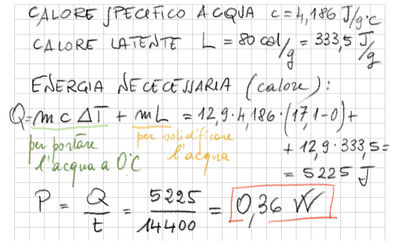 CALORE SPECIFICO ACQUA c = 4,186 J/g·°C
CALORE LATENTE L = 80 cal/g = 333,5 J/g
ENERGIA NECECESSARIA (calore):
Q = m c ΔT + mL = 12,9·4,186·(17,1-0)+
per portare l'acqua a 0°C
per solidificare l'acqua
+ 12,9·333,5=
= 5225 J
P = Q/t = 5225/14400 = 0,36 W